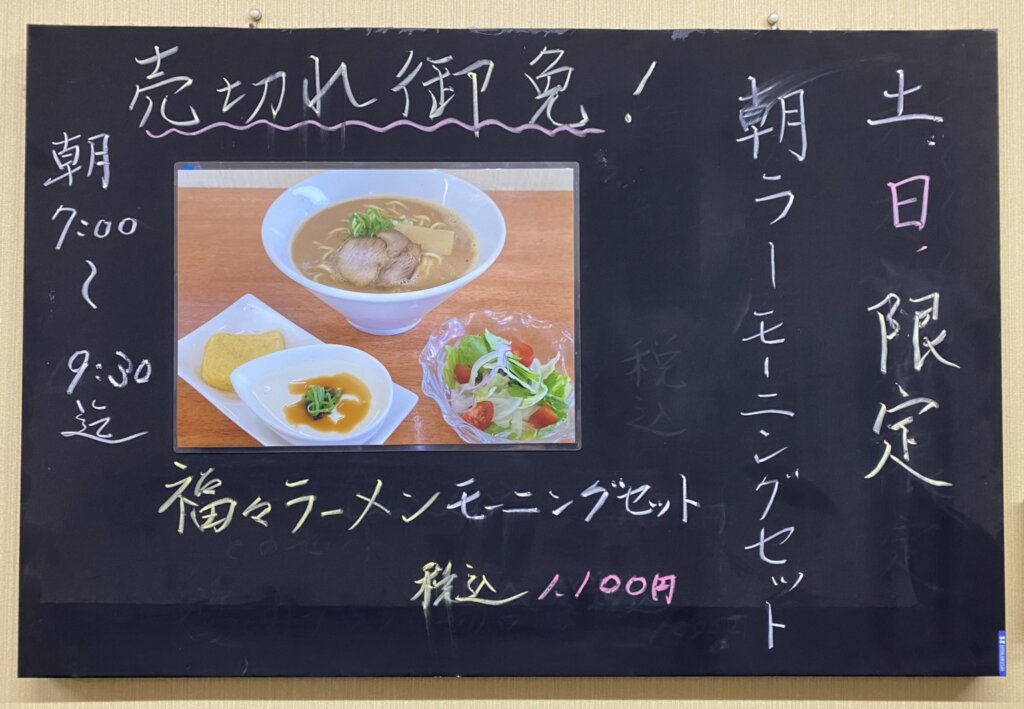 土、日、限定
朝ラーモーニングセット
売切れ御免！
朝
7:00
〜
9:30
迄
福々ラーメンモーニングセット
税込 1,100円
税込